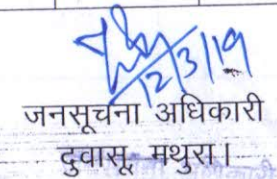 12/3/19
जनसूचना अधिकारी
दुवासू, मथुरा।